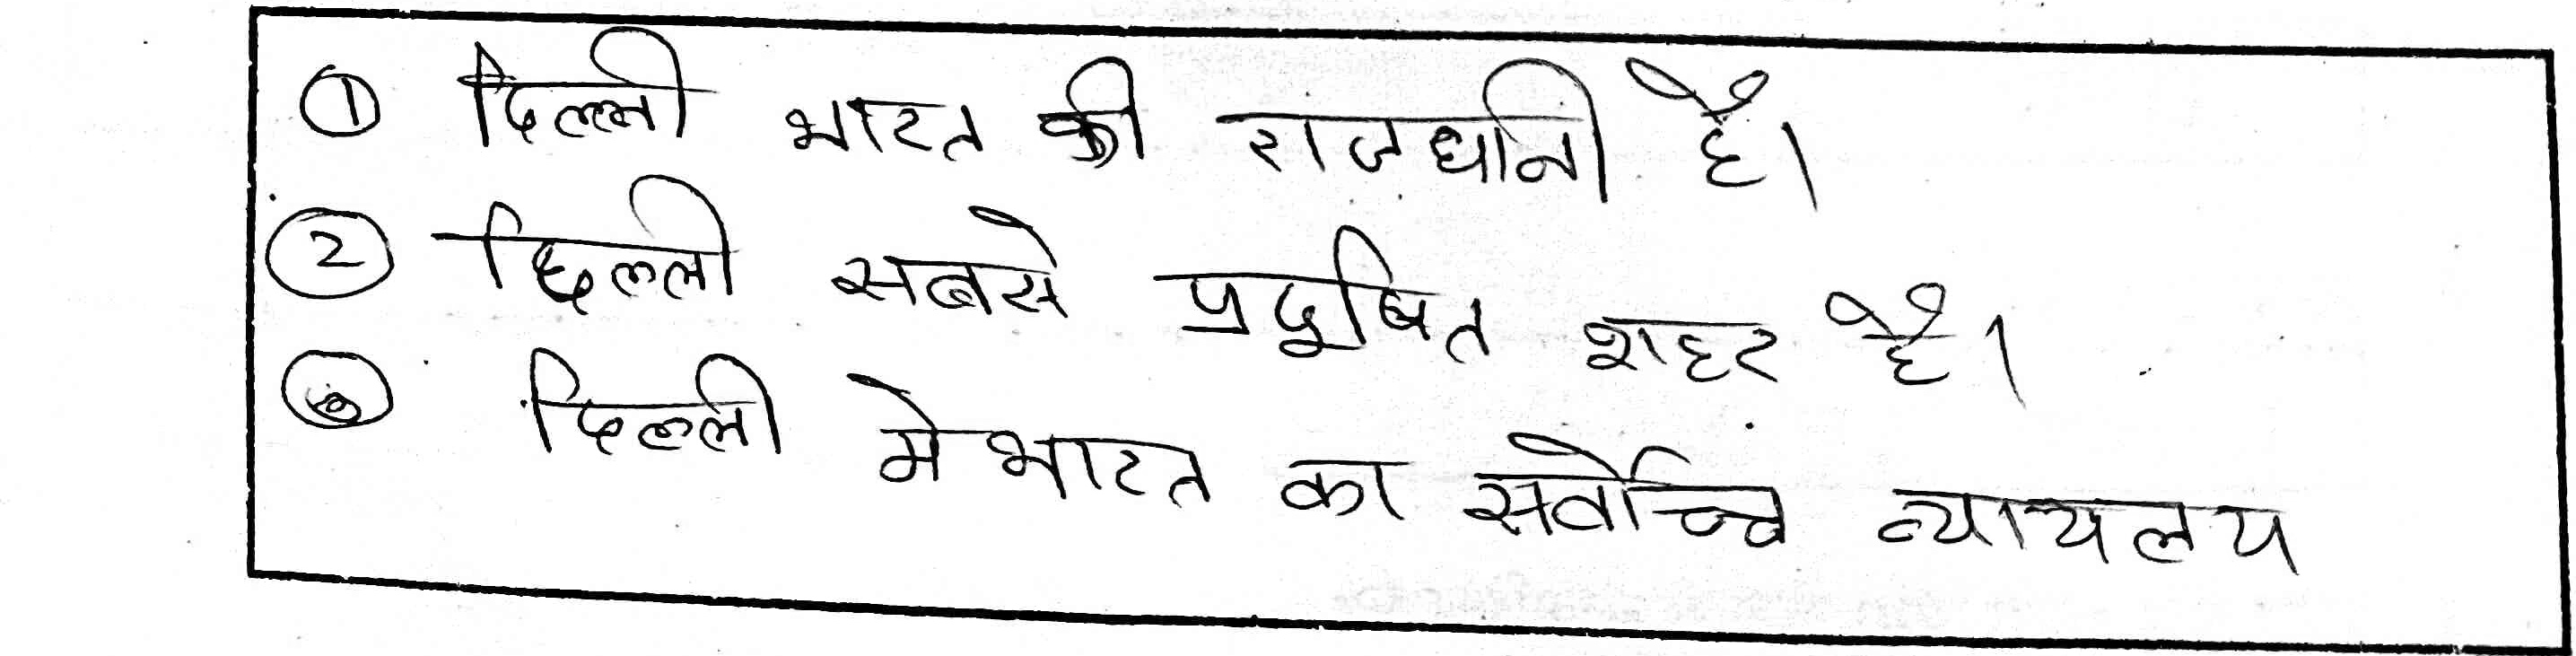 ① दिल्ली भारत की राजधानी है।
② दिल्ली सबसे प्रदूषित शहर है।
③ दिल्ली मे भारत का सर्वोच्च न्यायलय